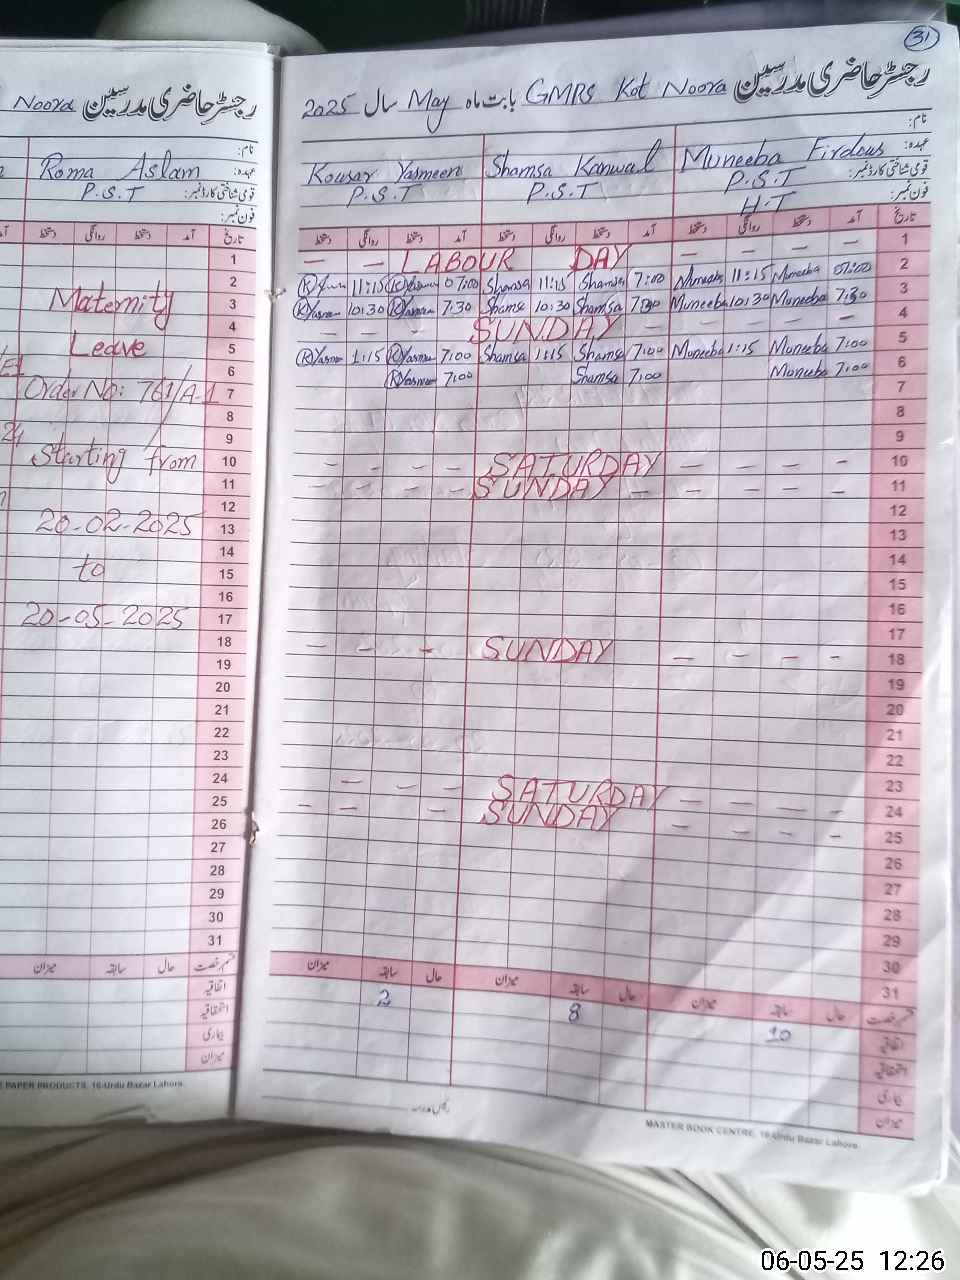 Noora رجسٹر حاضری مدرسین
نام:
عہدہ:
Roma Aslam
P.S.T
قومی شناختی کارڈ نمبر:
فون نمبر:
دستخط روانگی دستخط آمد تاریخ
1
2
Maternity
3
4
Leave
5
6
Order No: 761/A-1
7
8
9
Starting from
10
11
12
20-02-2025
13
14
to
15
16
20-05-2025
17
18
19
20
21
22
23
24
25
26
27
28
29
30
31
میزان سابقہ حال قسم رخصت
اتفاقیہ
استحقاقیہ
بیماری
میزان
PAPER PRODUCTS, 16-Urdu Bazar Lahore.
31
رجسٹر حاضری مدرسین GMPS Kot Noora بابت ماہ May سال 2025
نام:
عہدہ:
Kousar Yasmeen Shamsa Kanwal Muneeba Firdous
P.S.T P.S.T P.S.T
قومی شناختی کارڈ نمبر:
H.T
فون نمبر:
دستخط روانگی دستخط آمد دستخط روانگی دستخط آمد دستخط روانگی دستخط آمد تاریخ
— — LABOUR DAY — — — — 1
11:15 07:00 Shamsa 11:15 Shamsa 7:00 Muneeba 11:15 Muneeba 07:00 2
Yasmeen 10:30 Yasmeen 7:30 Shamsa 10:30 Shamsa 7:30 Muneeba 10:30 Muneeba 7:30 3
— — — — SUNDAY — — — — — 4
Yasmeen 1:15 Yasmeen 7:00 Shamsa 1:15 Shamsa 7:00 Muneeba 1:15 Muneeba 7:00 5
Yasmeen 7:00 Shamsa 7:00 Muneeba 7:00 6
7
8
9
— — — — SATURDAY — — — — 10
— — — — SUNDAY — — — — — 11
12
13
14
15
16
17
— — — SUNDAY — — — — 18
19
20
21
22
23
— — — SATURDAY — — — — 24
— — SUNDAY — — — — 25
26
27
28
29
30
31
میزان سابقہ حال میزان سابقہ حال میزان سابقہ حال قسم رخصت
2 8 10 اتفاقیہ
استحقاقیہ
بیماری
میزان
رئیس مدرسہ
MASTER BOOK CENTRE, 16-Urdu Bazar Lahore.
06-05-25 12:26